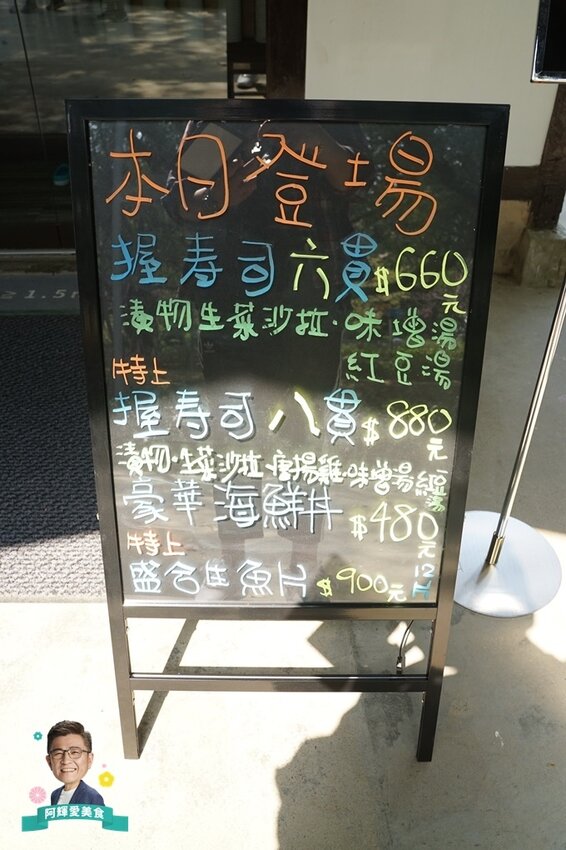 本日登場
握寿司六貫$660元
漬物生菜沙拉·味增湯
紅豆湯
特上
握寿司八貫$880元
漬物·生菜沙拉·唐揚雞·味增湯紅豆湯
豪華海鮮丼$480元
特上
盛合生魚片$900元12片
阿輝愛美食